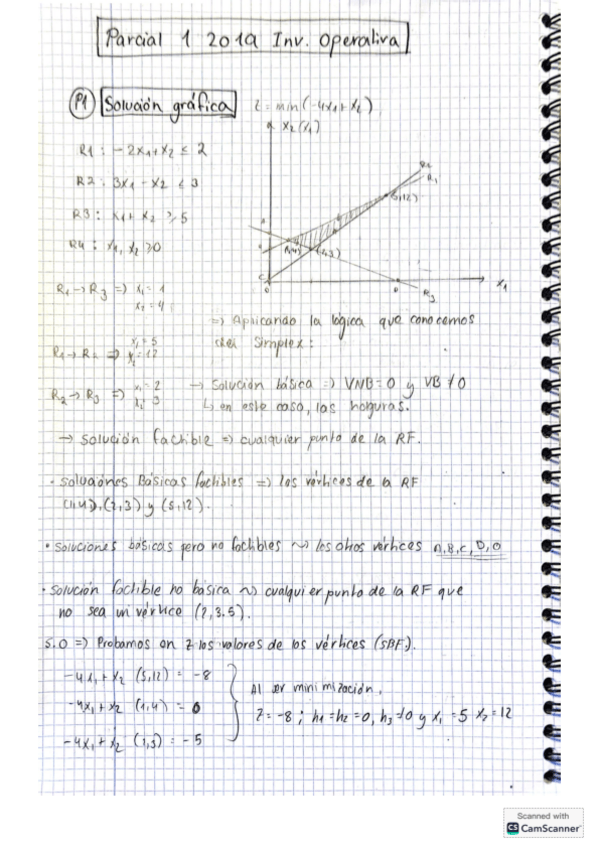 Parcial 1 2019 Inv. Operativa
P1 Solución gráfica Z = min(-4x1+x2)
x2 (x1)
R1 : -2x1+x2 ≤ 2
R2 : 3x1 - x2 ≤ 3
R3 : x1 + x2 ≥ 5
R4 : x1, x2 ≥ 0
R2
R1
(5,12)
(1,4)
(2,3)
x1
R3
R1 → R3 => x1 = 1
x2 = 4
R1 → R2 => x1 = 5
x2 = 12
R2 → R3 => x1 = 2
x2 = 3
=> Aplicando la lógica que conocemos
del Simplex:
→ Solución básica => VNB=0 y VB ≠ 0
↳ en este caso, las holguras.
→ Solución factible => cualquier punto de la RF.
· Soluciones Básicas factibles => los vértices de la RF
(1,4), (2,3) y (5,12).
· Soluciones básicas pero no factibles ~> los otros vértices A, B, C, D, O
· Solución factible no básica ~> cualquier punto de la RF que
no sea un vértice (2,3.5).
S.O => Probamos en Z los valores de los vértices (SBF).
-4x1 + x2 (5,12) = -8
-4x1 + x2 (1,4) = 0
-4x1 + x2 (2,3) = -5
Al ser minimización,
Z = -8 ; h1 = h2 = 0, h3 ≠ 0 y x1 = 5 x2 = 12
Scanned with
CS CamScanner